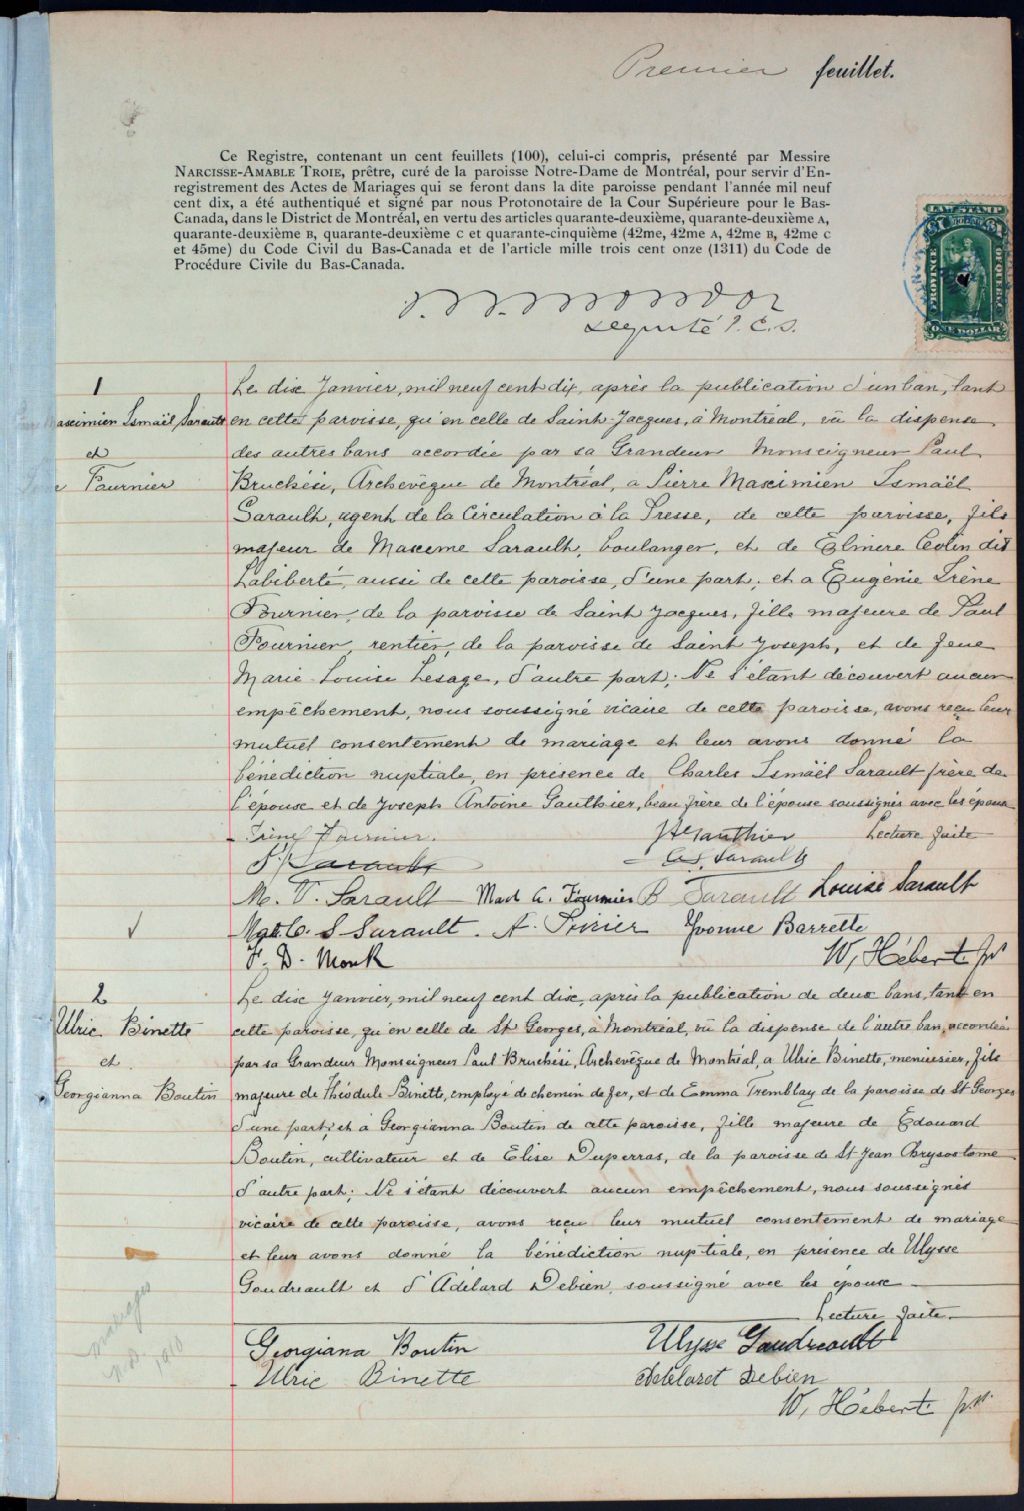 Premier feuillet.
Ce Registre, contenant un cent feuillets (100), celui-ci compris, présenté par Messire
NARCISSE-AMABLE TROIE, prêtre, curé de la paroisse Notre-Dame de Montréal, pour servir d'En-
registrement des Actes de Mariages qui se feront dans la dite paroisse pendant l'année mil neuf
cent dix, a été authentiqué et signé par nous Protonotaire de la Cour Supérieure pour le Bas-
Canada, dans le District de Montréal, en vertu des articles quarante-deuxième, quarante-deuxième A,
quarante-deuxième B, quarante-deuxième C et quarante-cinquième (42me, 42me A, 42me B, 42me C
et 45me) du Code Civil du Bas-Canada et de l'article mille trois cent onze (1311) du Code de
Procédure Civile du Bas-Canada.
LAW STAMP
PROVINCE OF QUEBEC
ONE DOLLAR
Deputé P. C. S.
1
Maximien Ismaël Sarault
et
Fournier
Le dix Janvier, mil neuf cent dix, après la publication d'un ban, tant
en cette paroisse, qu'en celle de Saint-Jacques, à Montréal, vû la dispense
des autres bans accordée par sa Grandeur Monseigneur Paul
Bruchési, Archevêque de Montréal, a Pierre Maximien Ismaël
Sarault, agent de la Circulation à la Presse, de cette paroisse, fils
majeur de Maxime Sarault, boulanger, et de Elmire Colin dit
Laliberté, aussi de cette paroisse, d'une part; et a Eugénie Irène
Fournier, de la paroisse de Saint Jacques, fille majeure de Paul
Fournier, rentier, de la paroisse de Saint Joseph, et de feue
Marie-Louise Lesage, d'autre part; Ne s'étant découvert aucun
empêchement, nous soussigné vicaire de cette paroisse, avons reçu leur
mutuel consentement de mariage et leur avons donné la
bénédiction nuptiale, en présence de Charles Ismaël Sarault frère de
l'épouse et de Joseph Antoine Gauthier, beau frère de l'épouse soussignés avec les époux
Irène Fournier. JAGauthier Lecture faite
Sarault C.I. Sarault
M. V. Sarault Mad A. Fournier B Sarault Louise Sarault
C. S Sarault. A. Poirier Yvonne Barrette
F. D. Monk W, Hébert ptr
2
Ulric Binette
et
Georgianna Boutin
Le dix Janvier, mil neuf cent dix, après la publication de deux bans, tant en
cette paroisse, qu'en celle de St Georges, à Montréal, vû la dispense de l'autre ban, accordée
par sa Grandeur Monseigneur Paul Bruchési, Archevêque de Montréal, a Ulric Binette, menuisier, fils
majeure de Théodule Binette, employé de chemin de fer, et de Emma Tremblay de la paroisse de St Georges
d'une part; et à Georgianna Boutin de cette paroisse, fille majeure de Edouard
Boutin, cultivateur et de Elise Duperras, de la paroisse de St Jean Chrysostome
d'autre part; Ne s'étant découvert aucun empêchement, nous soussignés
vicaire de cette paroisse, avons reçu leur mutuel consentement de mariage
et leur avons donné la bénédiction nuptiale, en présence de Ulysse
Goudreault et d'Adélard Debien, soussigné avec les époux
Lecture faite
Georgiana Boutin Ulysse Goudreault
Ulric Binette Adélard Debien
W, Hébert ptr.
mariages
N.D. 1910